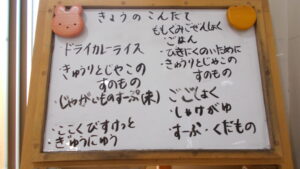 きょうのこんだて
ドライカレーライス
・きゅうりとじゃこの
すのもの
・じゃがいものすーぷ(米)
・ここくびすけっと
・ぎゅうにゅう
もしくみこぜんしょく
・ごはん
・ひきにくのいために
・きゅうりとじゃこの
すのもの
ごごしょく
・しゃけがゆ
・すーぷ・くだもの